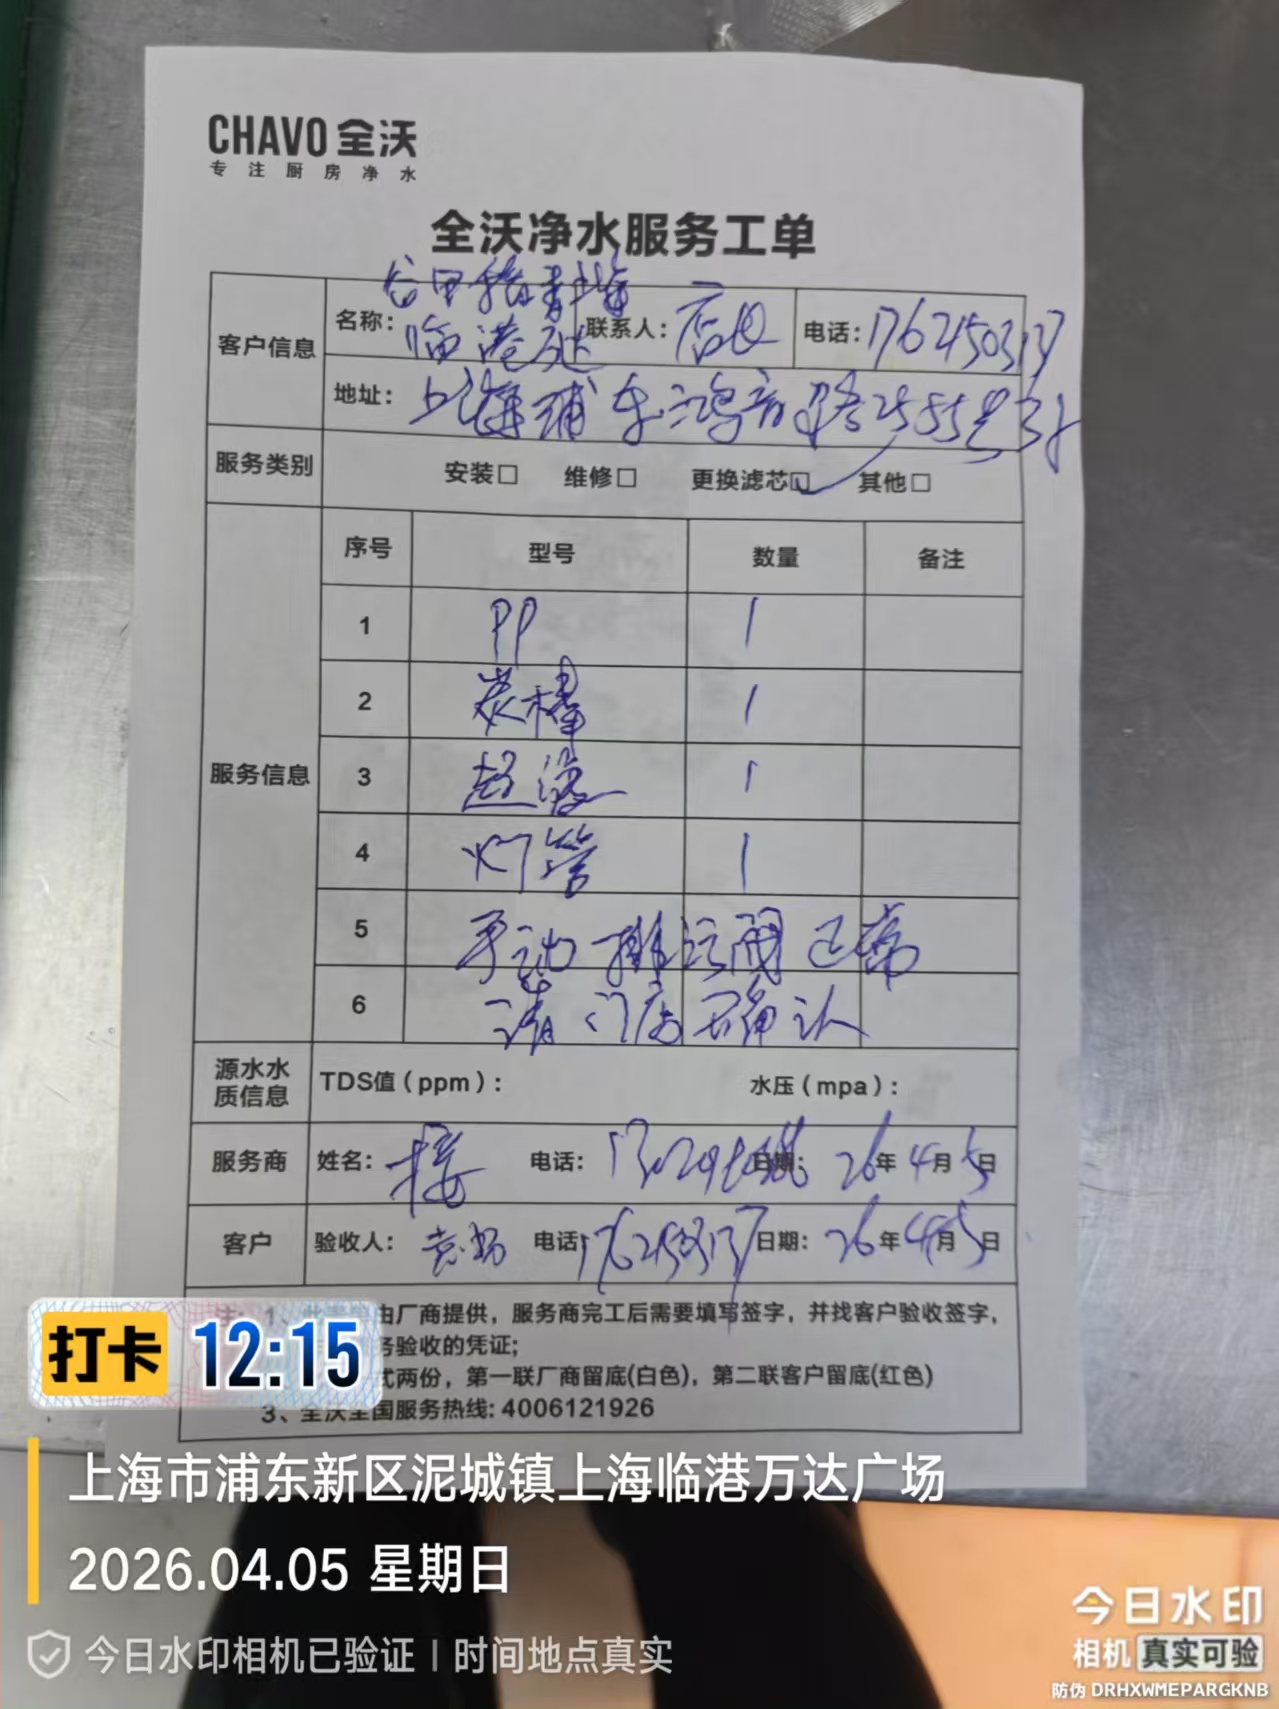 CHAVO 全沃
专注厨房净水
全沃净水服务工单
客户信息 名称: 临港店 联系人: 店长 电话: 17621503137
地址: 上海浦东鸿音路2585号
服务类别 安装□ 维修□ 更换滤芯☑ 其他□
服务信息 序号 型号 数量 备注
1 PP 1
2 炭棒 1
3 超滤 1
4 灯管 1
5 手动排污阀已
6 请门店确认
源水水质信息 TDS值(ppm): 水压(mpa):
服务商 姓名: 电话: 日期: 26年4月5日
客户 验收人: 电话: 17621503137 日期: 26年4月5日
1、由厂商提供，服务商完工后需要填写签字，并找客户验收签字，
务验收的凭证;
式两份，第一联厂商留底(白色)，第二联客户留底(红色)
3、全沃全国服务热线: 4006121926
打卡 12:15
上海市浦东新区泥城镇上海临港万达广场
2026.04.05 星期日
今日水印相机已验证 | 时间地点真实
今日水印
相机 真实可验
防伪 DRHXWMEPARGKNB